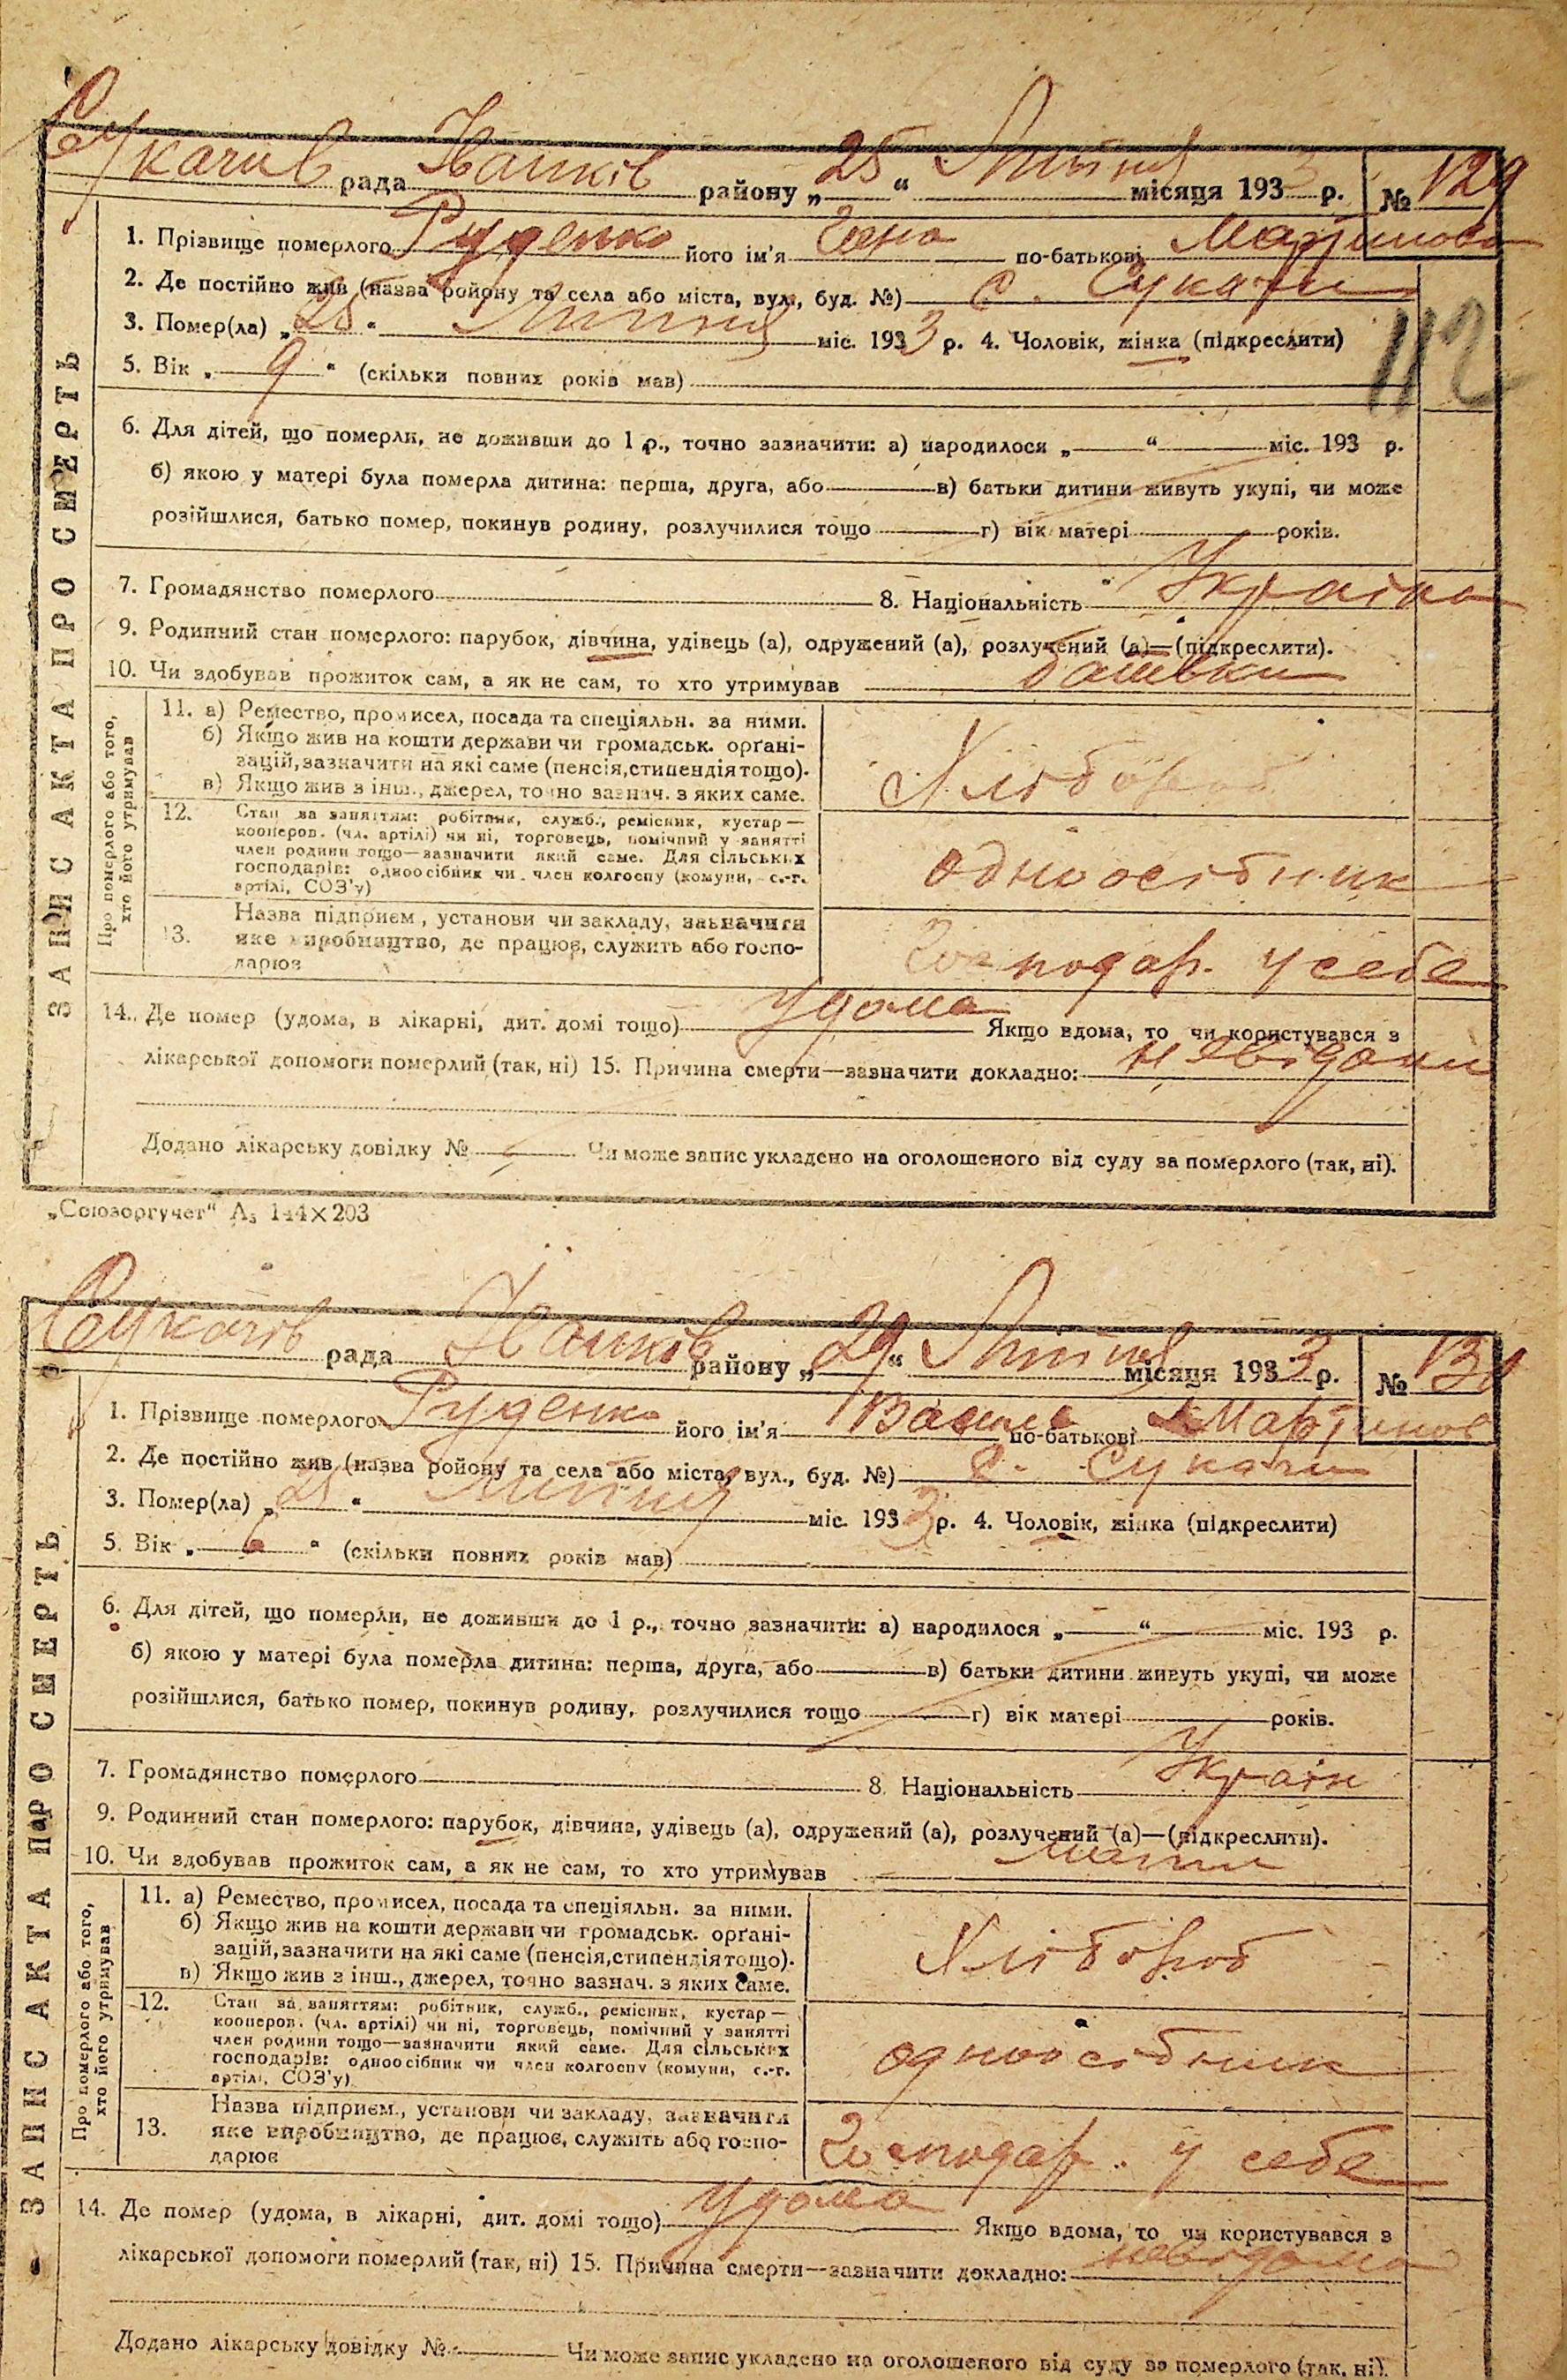 Сукачів рада Іванків району „25“ Липня місяця 1933 р. № 129
1. Прізвище померлого Руденко його ім'я по-батькові Мартинова
2. Де постійно жив (назва ройону та села або міста, вул., буд. №) С. Сукачи
3. Помер(ла) „25“ Липня міс. 1933 р. 4. Чоловік, жінка (підкреслити)
112
5. Вік „ 9 “ (скільки повних років мав)
6. Для дітей, що померли, не доживши до 1 р., точно зазначити: а) народилося „ “ міс. 193 р.
б) якою у матері була померла дитина: перша, друга, або в) батьки дитини живуть укупі, чи може
розійшлися, батько помер, покинув родину, розлучилися тощо г) вік матері років.
7. Громадянство померлого 8. Національність Україна
9. Родинний стан померлого: парубок, дівчина, удівець (а), одружений (а), розлучений (а)—(підкреслити).
10. Чи здобував прожиток сам, а як не сам, то хто утримував батьки
ЗАПИС АКТА ПРО СМЕРТЬ
Про померлого або того,
хто його утримував
11. а) Ремество, промисел, посада та спеціяльн. за ними.
б) Якщо жив на кошти держави чи громадськ. орґані-
зацій, зазначити на які саме (пенсія, стипендія тощо).
в) Якщо жив з інш., джерел, точно зазнач. з яких саме.
Хлібороб
12. Стан за заняттям: робітник, служб., ремісник, кустар —
кооперов. (чл. артілі) чи ні, торговець, помічний у занятті
член родини тощо—зазначити який саме. Для сільських
господарів: одноосібник чи член колгоспу (комуни, с.-г.
артілі, СОЗ'у)
одноосібник
Назва підприєм., установи чи закладу, зазначити
13. яке виробництво, де працює, служить або госпо-
дарює
Господар. у себе
14. Де помер (удома, в лікарні, дит. домі тощо) удома Якщо вдома, то чи користувався з
лікарської допомоги померлий (так, ні) 15. Причина смерти—зазначити докладно:
Додано лікарську довідку № Чи може запис укладено на оголошеного від суду за померлого (так, ні).
„Союзоргучет“ А₅ 144×203
Сукачів рада Іванків району „29“ Липня місяця 1933 р. №
1. Прізвище померлого Руденко його ім'я Василь по-батькові Мартинов
2. Де постійно жив (назва ройону та села або міста, вул., буд. №) С. Сукачи
3. Помер(ла) „25“ Липня міс. 1933 р. 4. Чоловік, жінка (підкреслити)
5. Вік „ 6 “ (скільки повних років мав)
6. Для дітей, що померли, не доживши до 1 р., точно зазначити: а) народилося „ “ міс. 193 р.
б) якою у матері була померла дитина: перша, друга, або в) батьки дитини живуть укупі, чи може
розійшлися, батько помер, покинув родину, розлучилися тощо г) вік матері років.
7. Громадянство померлого 8. Національність Україн
9. Родинний стан померлого: парубок, дівчина, удівець (а), одружений (а), розлучений (а)—(підкреслити).
10. Чи здобував прожиток сам, а як не сам, то хто утримував мати
ЗАПИС АКТА ПРО СМЕРТЬ
Про померлого або того,
хто його утримував
11. а) Ремество, промисел, посада та спеціяльн. за ними.
б) Якщо жив на кошти держави чи громадськ. орґані-
зацій, зазначити на які саме (пенсія, стипендія тощо).
в) Якщо жив з інш., джерел, точно зазнач. з яких саме.
Хлібороб
12. Стан за заняттям: робітник, служб., ремісник, кустар —
кооперов. (чл. артілі) чи ні, торговець, помічний у занятті
член родини тощо—зазначити який саме. Для сільських
господарів: одноосібник чи член колгоспу (комуни, с.-г.
артілі, СОЗ'у)
одноосібник
Назва підприєм., установи чи закладу, зазначити
13. яке виробництво, де працює, служить або госпо-
дарює
Господар. у себе
14. Де помер (удома, в лікарні, дит. домі тощо) удома Якщо вдома, то чи користувався з
лікарської допомоги померлий (так, ні) 15. Причина смерти—зазначити докладно: невідома
Додано лікарську довідку № Чи може запис укладено на оголошеного від суду за померлого (так, ні).